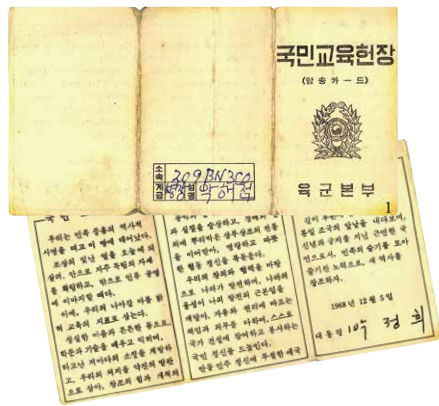 국민교육헌장
(암송카－드)
육군본부
소속 309BN3CO
계급 병장 성명
1
우리는 민족 중흥의 역사적
사명을 띠고 이 땅에 태어났다.
조상의 빛난 얼을 오늘에 되
살려, 안으로 자주 독립의 자세
를 확립하고, 밖으로 인류 공영
에 이바지할 때다.
이에, 우리의 나아갈 바를 밝
혀 교육의 지표로 삼는다.
성실한 마음과 튼튼한 몸으로,
학문과 기술을 배우고 익히며,
타고난 저마다의 소질을 계발하
고, 우리의 처지를 약진의 발판
으로 삼아, 창조의 힘과 개척의
질을 숭상하고, 경애와 신
의에 뿌리박은 상부상조의 전통
을 이어받아, 명랑하고 따뜻
한 협동 정신을 북돋운다.
우리의 창의와 협력을 바탕
으로 나라가 발전하며, 나라의
융성이 나의 발전의 근본임을
깨달아, 자유와 권리에 따르는
책임과 의무를 다하며, 스스로
국가 건설에 참여하고 봉사하는
국민 정신을 드높인다.
반공 민주 정신에 투철한 애국
통일 조국의 앞날을 내다보며,
신념과 긍지를 지닌 근면한 국
민으로서, 민족의 슬기를 모아
줄기찬 노력으로, 새 역사를
창조하자.
1968년 12월 5일
대통령 박정희